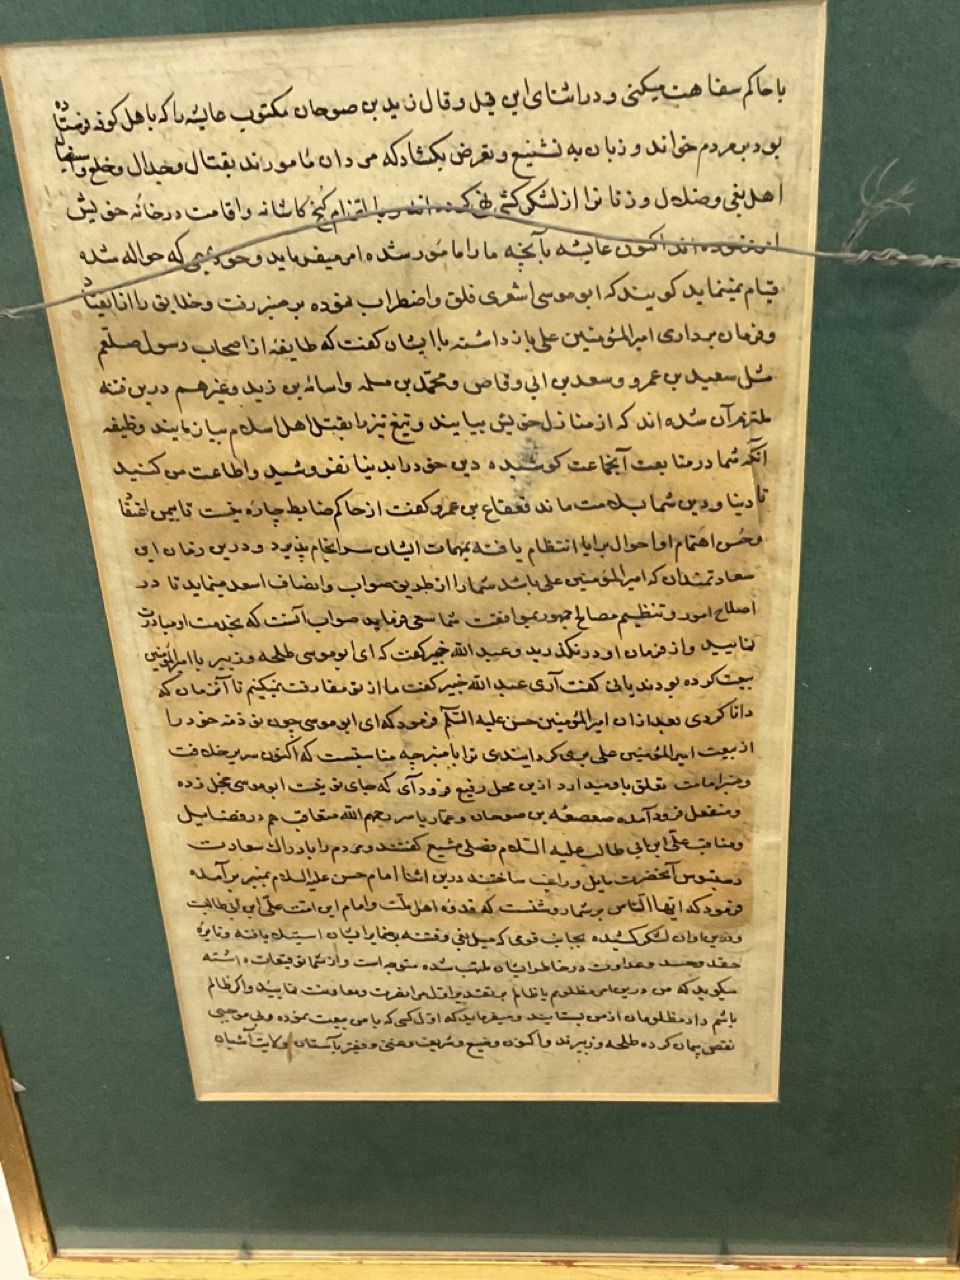 با حاکم سفاهت میکنی و در اثنای این قیل و قال زید بن صوحان مکتوب عایشه را که باهل کوفه فرستاده
بود بر مردم خواند و زبان به تشنیع و تعرض بکشاد که مردان مامورند بقتال و جدال و خلع
اهل بغی و ضلال و زنانرا از لشکر کشی کرده اند و با لتزام کنج کاشانه و اقامت در خانه خویش
امر نموده اند اکنون عایشه بآنچه ما را مامور شده امر میفرماید و خود بمهمی که حواله شده
قیام نمینماید کویند که ابو موسی اشعری قلق و اضطراب نموده بر منبر رفت و خلایق را از
و فرمان برداری امیرالمؤمنین علی باز داشته با ایشان کفت که طایفه از اصحاب رسول صلعم
مثل سعید بن عمرو و سعد بن ابی وقاص و محمد بن مسلمه و اسامه بن زید و غیرهم درین فتنه
ملتزم آن شده اند که از منازل خویش بیایند و تیغ تیز را بقتل اهل اسلام بیازمایند وظیفه
آنکه شما در متابعت آنجماعت کوشیده دین خود را بدنیا نفروشید و اطاعت من کنید
تا دنیا و دین شما بسلامت ماند قعقاع بن عمرو کفت از حاکم ضابط چاره نیست تا بیمن
و حسن اهتمام او احوال برایا انتظام یافته مهمات ایشان سرانجام پذیرد و درین زمان این
سعادتمندان که امیرالمؤمنین علی باشد شما را از طریق صواب و انصاف اسعد مینماید تا در
اصلاح امور و تنظیم مصالح جمهور بموافقت شما سعی فرماید صواب آنست که بخدمت او مبادرت
نمایید و از فرمان او در نکذرید و عبد الله خیر کفت که ای ابو موسی طلحه و زبیر با امیرالمؤمنین
بیعت کرده بودند یا نی کفت آری عبد الله خیر کفت ما از تو مفارقت میکنیم تا آنزمان که
دانا کردی بعد ازان امیرالمؤمنین حسن علیه السلم فرمود که ای ابو موسی چون تو ذمه خود را
از بیعت امیرالمؤمنین علی بری کردایندی ترا با منبر چه مناسبتست که اکنون سریر خلافت
و منبر امامت تعلق باو میدارد ازین محل رفیع فرود آی که جای تو نیست ابو موسی خجل زده
و منفعل فرود آمده صعصعه بن صوحان و عمار یاسر رحمهم الله متعاقب هم در فضایل
و مناقب علی ابن ابی طالب علیه السلام فصلی مشبع کفتند و مردم را بادراک سعادت
دستبوس آنحضرت مایل و راغب ساختند درین اثنا امام حسن علیه السلام بمنبر بر آمده
فرمود که ایها الناس بر شما روشنست که قدوه اهل ملت و امام این امت علی ابن ابی طالبست
و درین اوان لشکر کشیده بجانب قومی که میل بغی و فتنه بر ضمایر ایشان استیلا یافته و نایره
حقد و حسد و عداوت در خاطر ایشان ملتهب شده متوجه است و از شما توقعات داشته
میکوید که من درین امر مظلومم یا ظالم بر تقدیر اول مرا نصرت و معاونت نمایید و اکر ظالم
باشم داد مظلومان از من بستانید و میفرماید که اول کسی که با من بیعت نموده و بی موجبی
نقض پیمان کرده طلحه و زبیرند و اکنون وضیع و شریف و غنی و فقیر بآستان ولایت آشیان